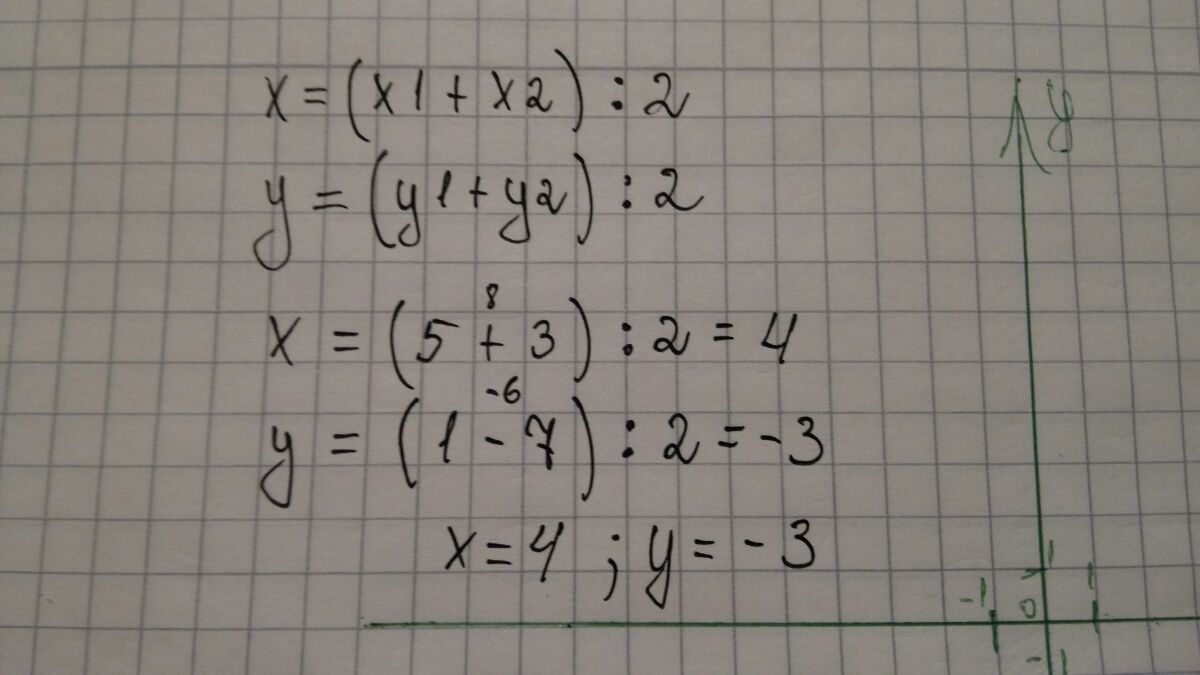 x = (x1 + x2) : 2
y = (y1 + y2) : 2
8
x = (5 + 3) : 2 = 4
-6
y = (1 - 7) : 2 = -3
x = 4 ; y = -3
y
1
-1 0 1
-1